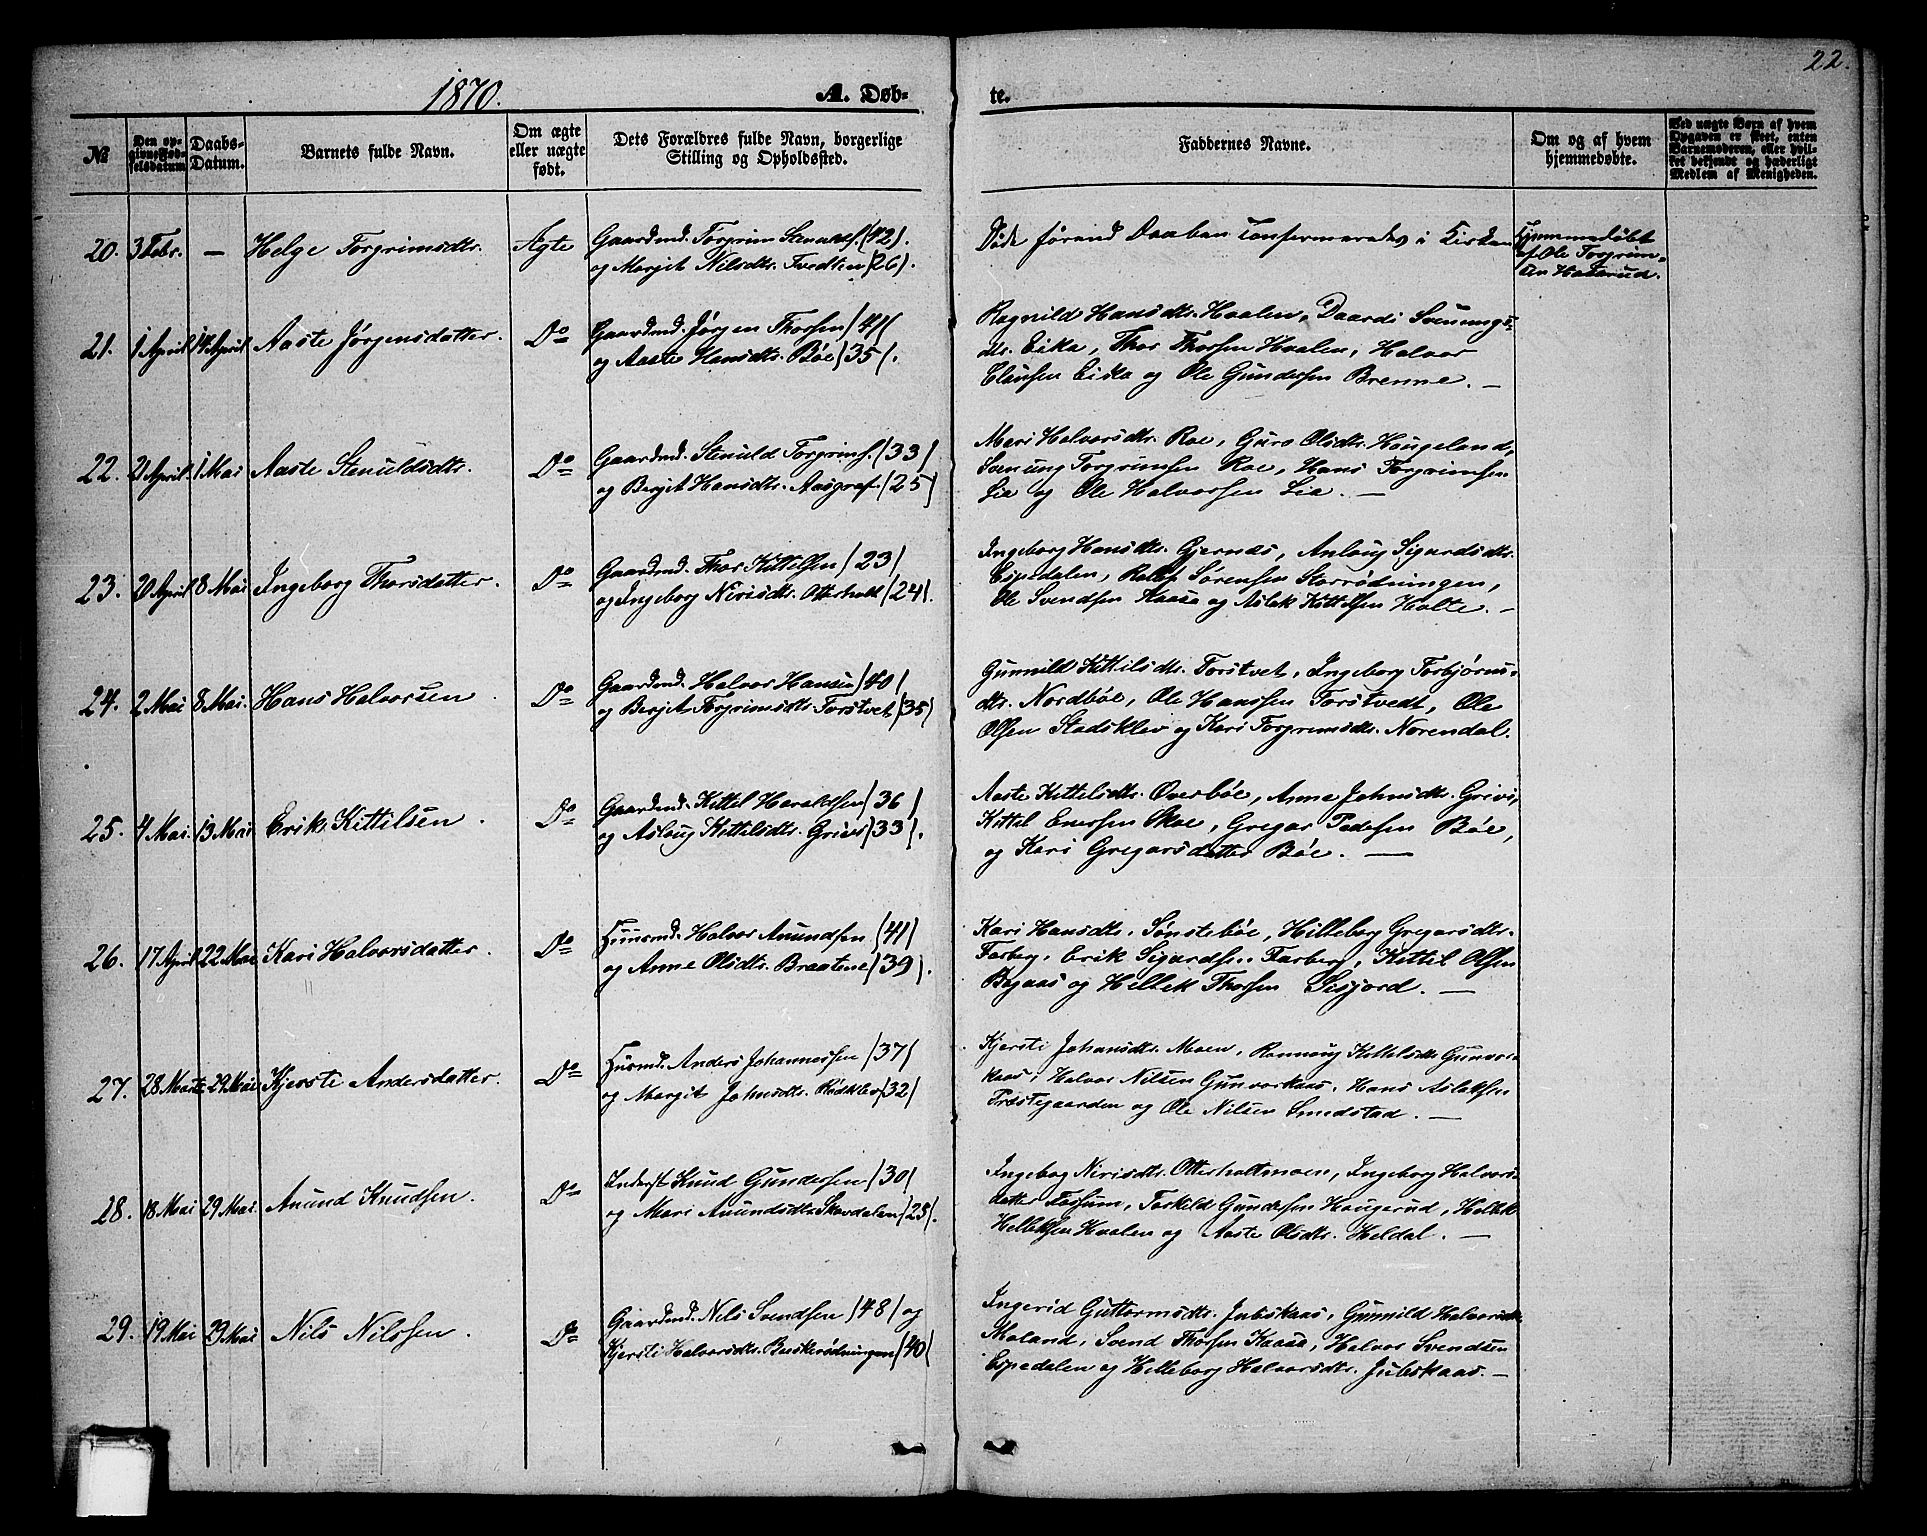 22.
1870.
A. Døb-
te.
No
Den op-
givne Fød-
selsdatum
Daabs-
Datum.
Barnets fulde Navn.
Om ægte
eller uægte
født.
Dets Forældres fulde Navn, borgerlige
Stilling og Opholdssted.
Faddernes Navne.
Om og af hvem
hjemmedøbte.
Ved uægte Børn af hvem
Opgaven er skeet, enten
Barnemoderen, eller hvil-
ket bekjendt og hæderligt
Medlem af Menigheden.
20. 3 Febr. — Helge Torgrimsdtr. Ægte
Gaardmd. Torgrim (42).
og Margit Nilsdtr. Tvedten (26).
Døde førend Daaben confirmeredes i Kirken
Hjemmedøbt
af Ole Torgrim-
sen
21. 1 April 14 April Aaste Jørgensdatter. Do
Gaardmd. Jørgen Thorsen (41)
og Aaste Hansdtr. Bøe (35).
Ragnild Hansdtr. Hvalen, Daardi Svenungs-
dtr. Eika, Thor Thorsen Hvalen, Halvor
Clausen Eika og Ole Gundersen Brenne. —
22. 21 April 1 Mai Aaste Stenuldsdtr. Do
Gaardmd. Stenuld Torgrims. (33)
og Bergit Hansdtr. Aasgraf (25)
Mari Halvorsdtr. Roe, Guro Olsdtr. Haugeland,
Svenung Torgrimsen Roe, Hans Torgrimsen
Lia og Ole Halvorsen Lia. —
23. 20 April 8 Mai Ingeborg Thorsdatter. Do
Gaardmd. Thor Kittelsen (23)
og Ingeborg Nirisdtr. Otterholt (24).
Ingeborg Hansdtr. Gjernæs, Anlaug Sigurdsdtr.
Espedalen, Rollef Sørensen Storrødningen,
Ole Svendsen Kaasa og Aslak Kittilsen Holte. —
24. 2 Mai 8 Mai. Hans Halvorsen Do
Gaardmd. Halvor Hansen (40)
og Berjit Torgrimsdtr. Torstvet (35)
Gunnild Kittilsdtr. Torstvet, Ingeborg Torbjørns-
dtr. Nordbøe, Ole Hanssen Torstvedt, Ole
Olsen Stadsklev og Kari Torgrimsdtr. Norendal.
25. 4 Mai. 13 Mai Erik Kittilsen. Do
Gaardmd. Kittel Haraldsen (36)
og Aslaug Kittilsdtr. Grivi (33).
Aaste Kittelsdtr. Overbøe, Anne Johnsdtr. Grivi,
Kittel Enersen Moe, Gregar Pedersen Bøe,
og Kari Gregarsdatter Bøe. —
26. 17 April 22 Mai Kari Halvorsdatter. Do
Huusmd. Halvor Anundsen (41)
og Anne Olsdtr. Braatene (39).
Kari Hansdtr. Sønstebøe, Hilleborg Gregarsdtr.
Farberg, Erik Sigurdsen Farberg, Kittil Olsen
Bogaas og Hellek Thorsen Sisjord. —
27. 28 Marts 29 Mai Kjerste Andersdatter. Do
Husmd. Anders Johannessen (37)
og Margit Johnsdtr. Rødklev (32)
Kjersti Johansdtr. Moen, Rannaug Kittelsdtr. Gunvor-
kaas, Halvor Nilsen Gunvorkaas. Hans Aslaksen
Præstegaarden og Ole Nilsen Smedstad. —
28. 18 Mai 29 Mai. Anund Knudsen. Do
Inderst Knud Gundersen (30)
og Mari Anundsdtr. Skovdalen (25).
Ingebog Nirisdtr. Otterholtmoen, Ingeborg Halvors-
datter Fossum, Torkild Gundersen Haugerud, Hellek
Helleksen Hvalen og Aaste Olsdtr. Heldal. —
29. 19 Mai 29 Mai Nils Nilssen. Do
Gaardmd. Nils Svendsen (48) og
Kjersti Halvorsdtr. Buskerødningen (40)
Ingerid Guttormsdtr. Jubskaas, Gunnild Halvorsdtr.
Moland, Svend Thorsen Kaasa, Halvor Svendsen
Espedalen og Helleborg Halvorsdtr. Jubskaas. —